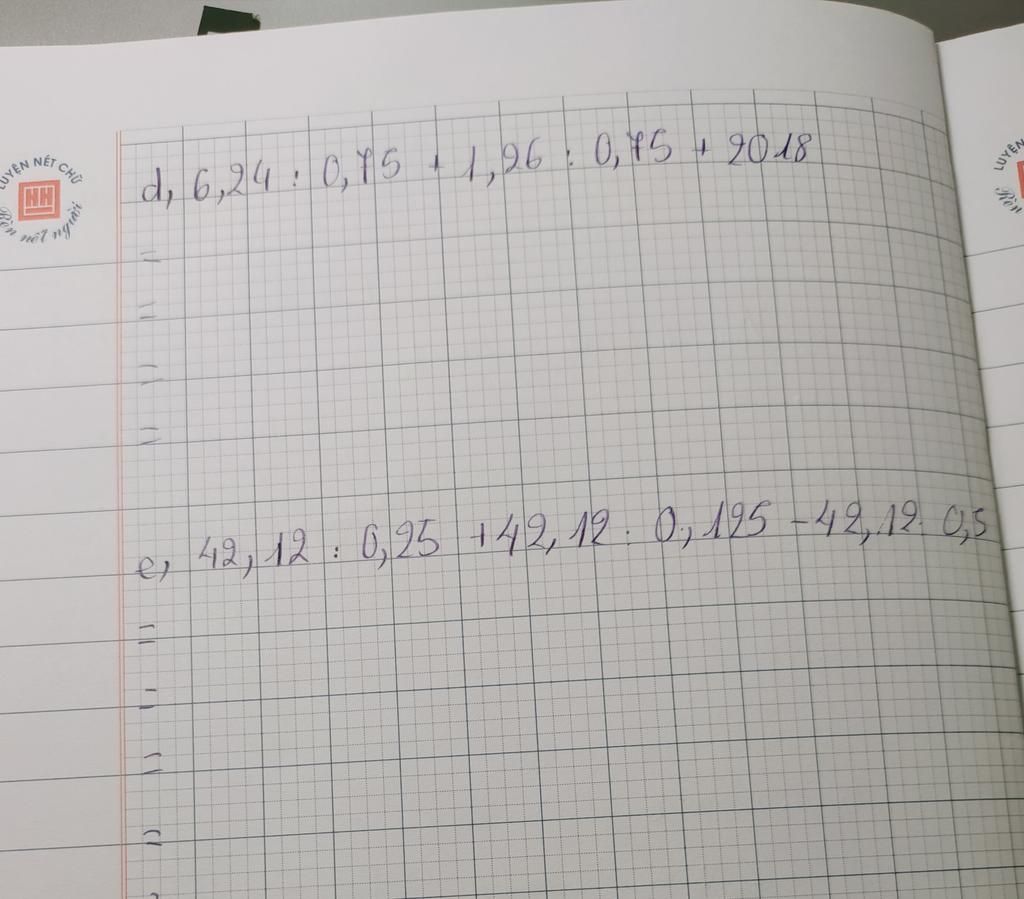 LUYỆN NÉT CHỮ
HH
Rèn nết người
d, 6,24 : 0,75 + 1,26 : 0,75 + 2018
=
=
=
=
e, 42,12 : 0,25 + 42,12 : 0,125 - 42,12 : 0,5
=
=
=
=
LUYỆN
Rèn